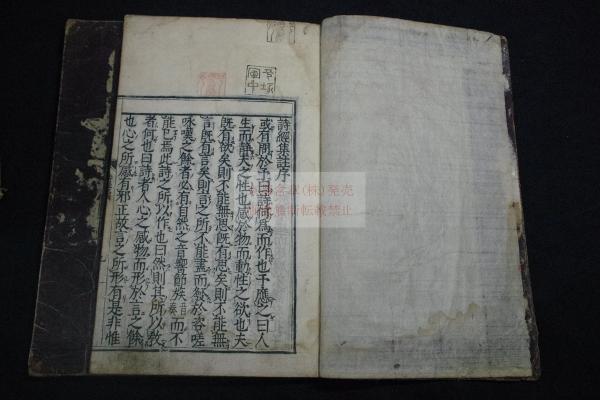 詩經集註序
或有問於予曰詩何爲而作也予應之曰人
生而静天之性也感於物而動性之欲也夫
既有欲矣則不能無思既有思矣則不能無
言既有言矣則言之所不能盡而發於咨嗟
咏嘆之餘者必有自然之音響節族而不
能已焉此詩之所以作也曰然則其所以教
者何也曰詩者人心之感物而形於言之餘
也心之所感有邪正故言之所形有是非惟
(株)発売
無断転載禁止